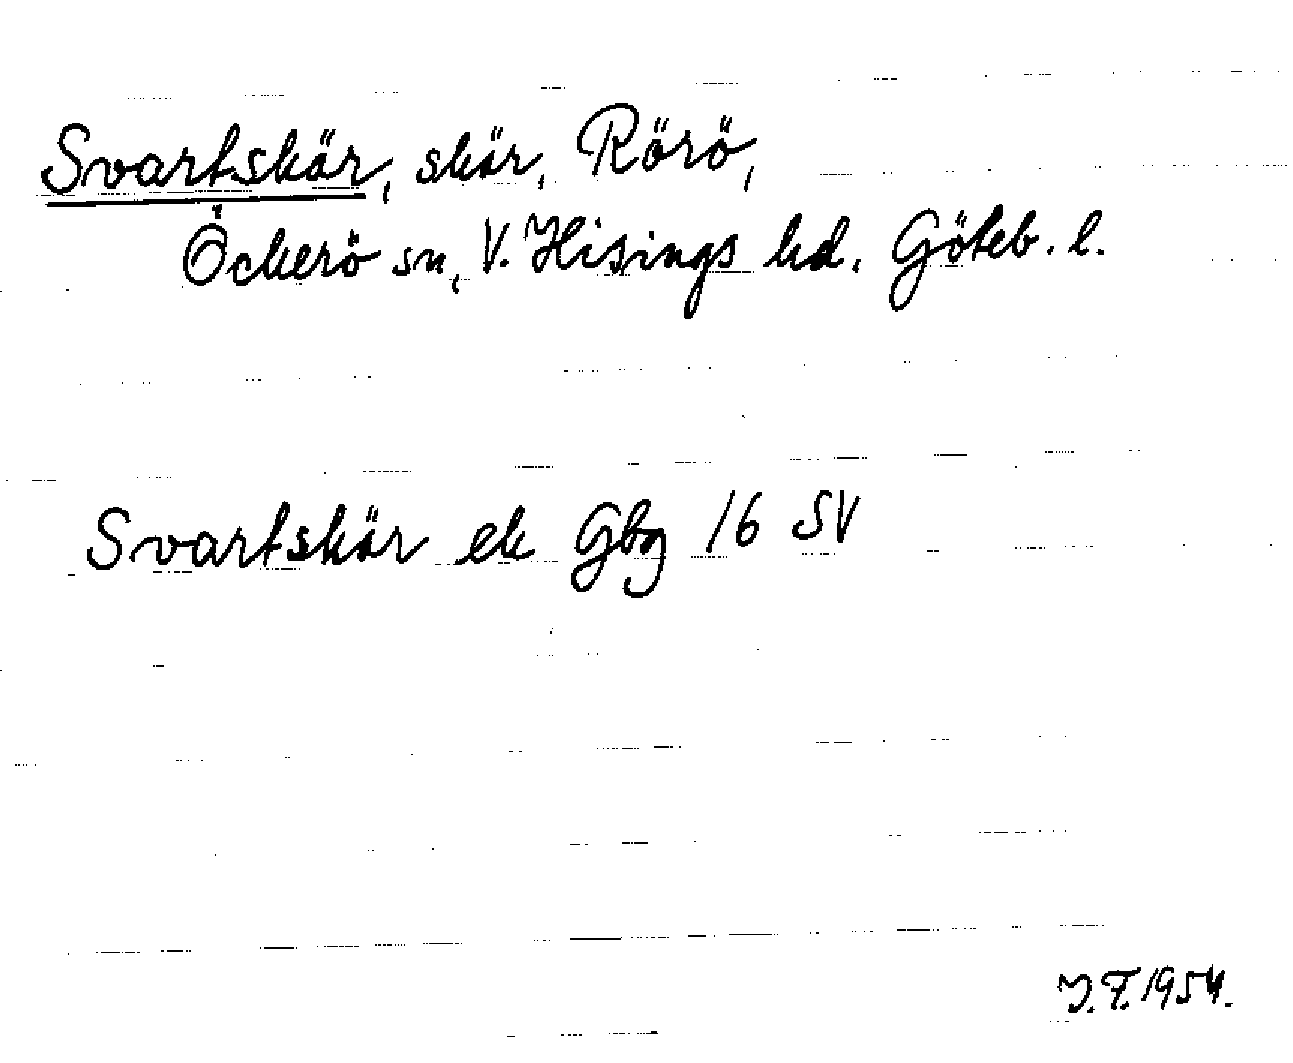 Svartskär, skär, Rörö,
Öckerö sn, V. Hisings hd. Göteb. l.
Svartskär ek Gbg 16 SV
J.F. 1954.